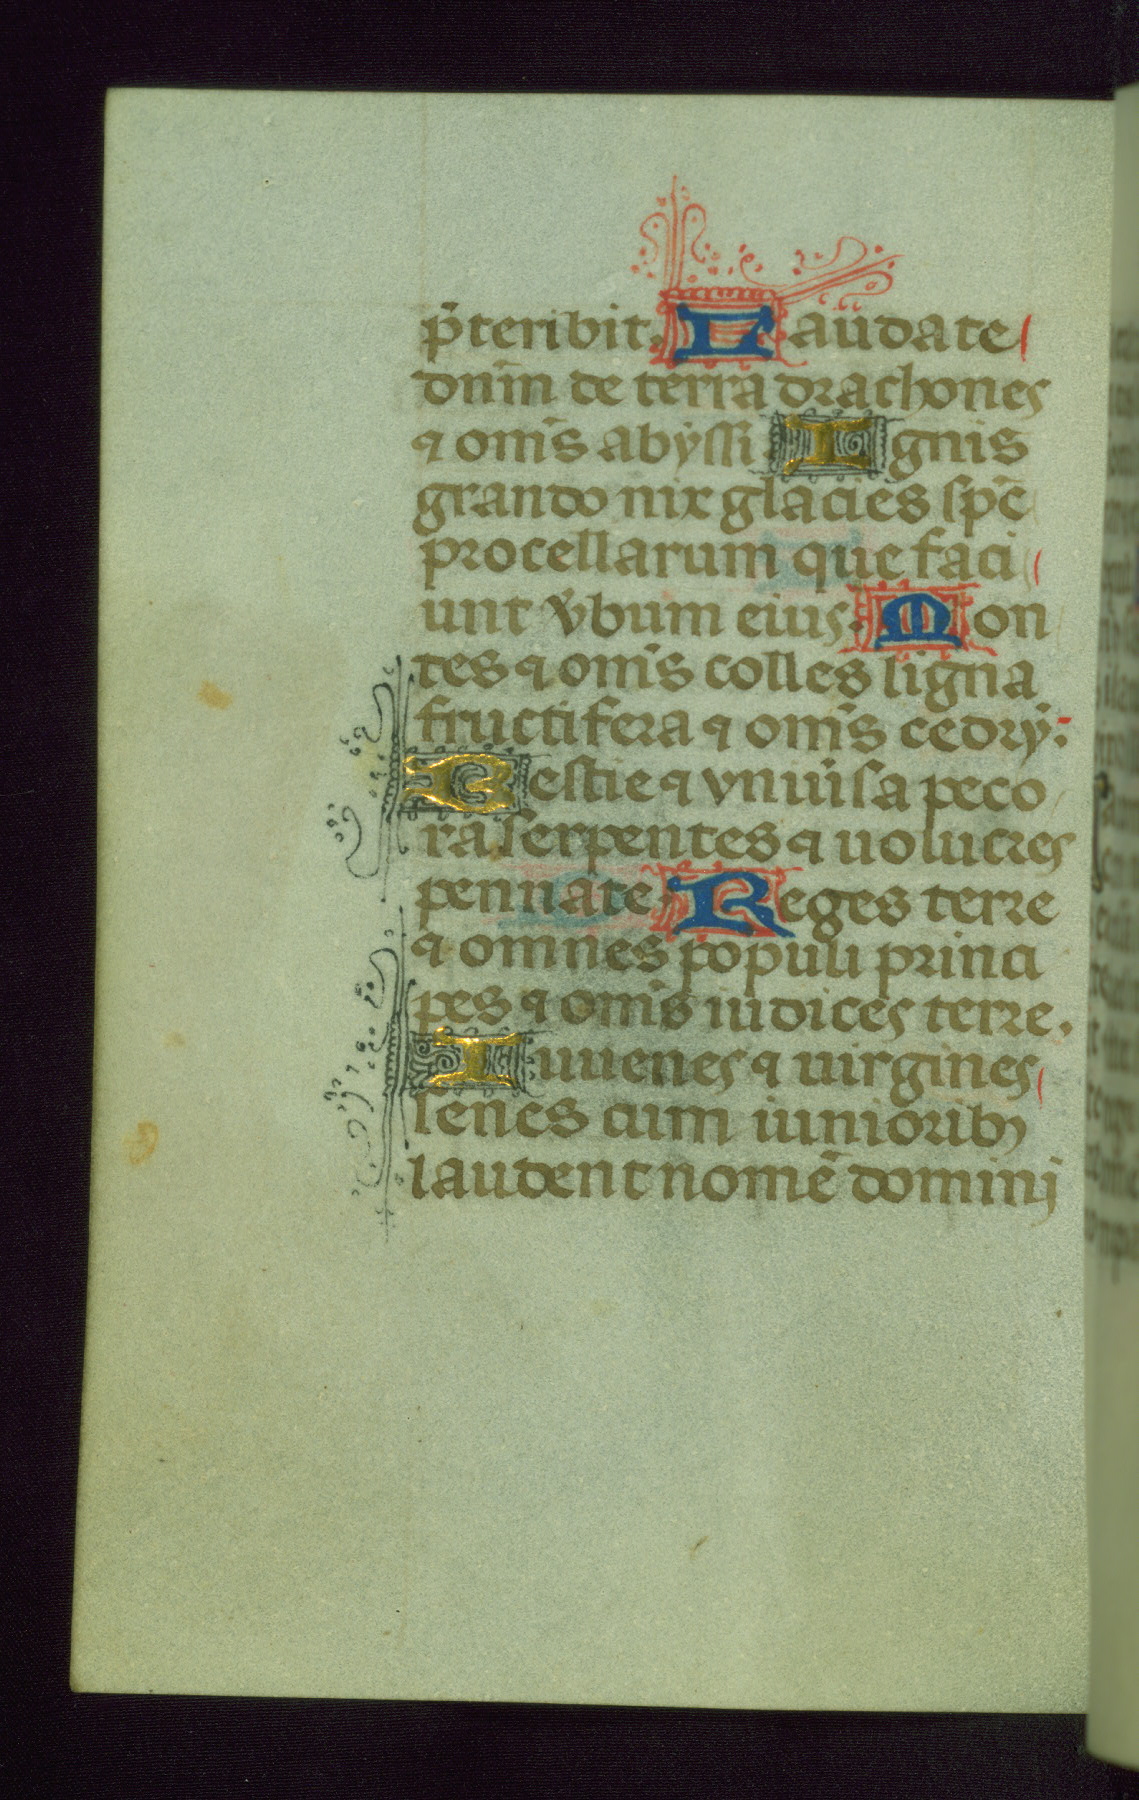 p̄teribit. Laudate
dn̄m de terra drachones
⁊ om̄s abyssi. Ignis
grando nix glacies sp̄c
procellarum que faci
unt v̄bum eius. Mon
tes ⁊ om̄s colles ligna
fructifera ⁊ om̄s cedry.
Bestie ⁊ vnuūsa peco
ra serpentes ⁊ uolucres
pennate. Reges terre
⁊ omnes populi princi
pes ⁊ om̄s iudices terre.
Iuuenes ⁊ uirgines
senes cum iuniorib⁊
laudent nomē domini